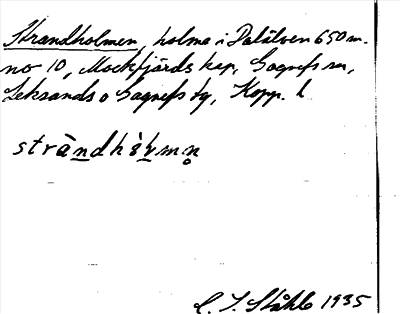 Strandholmen, holme i Dalälven 650 m.
no 10, Mockfjärds kap, Gagnefs sn,
Leksands o Gagnefs tg, Kopp. l
stràndhòvmn
C. I. Ståhle 1935